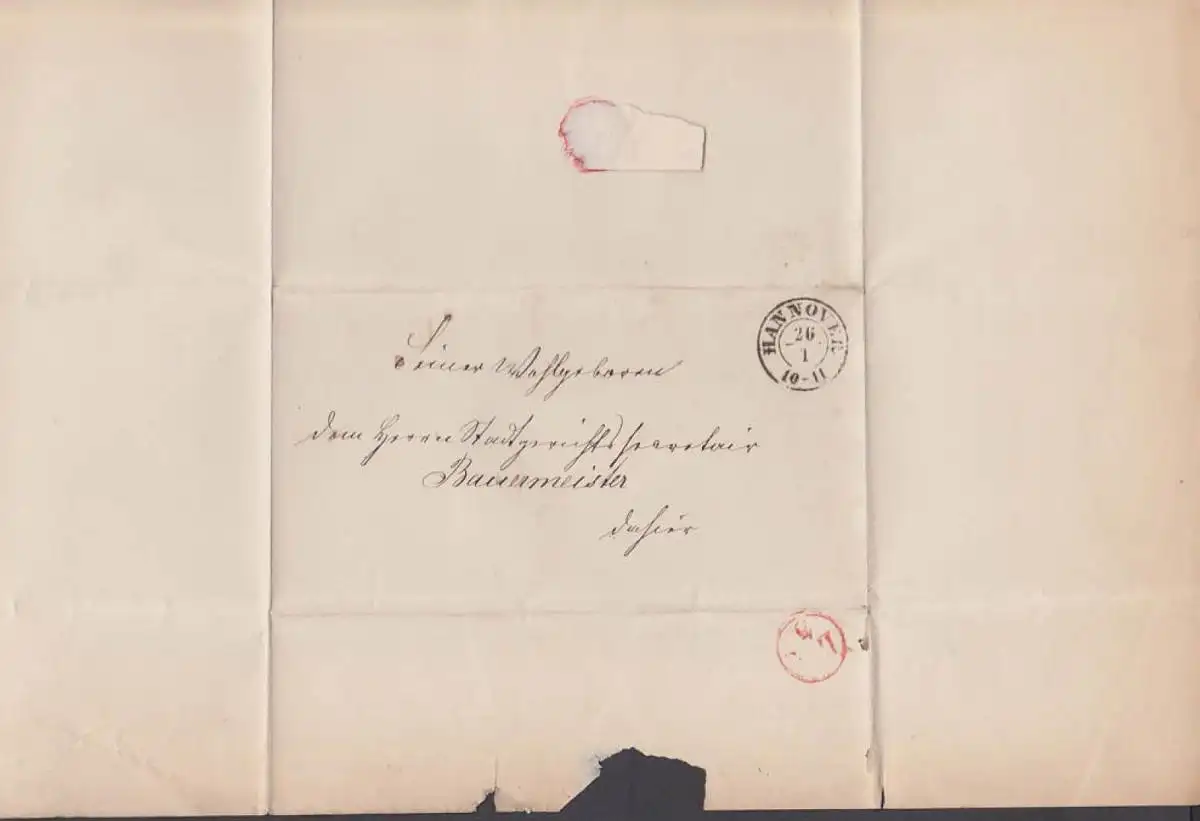 HANNOVER
26
1
10-11
Seiner Wohlgeboren
dem Herrn Stadtgerichtssecretair
Bauermeister
dahier